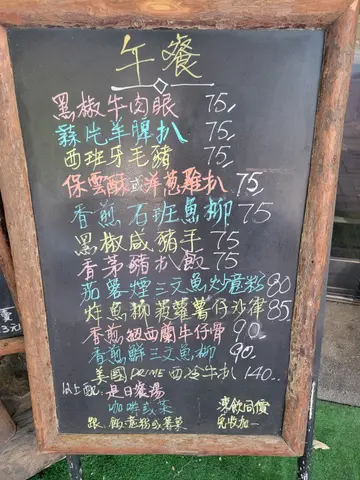 午餐
黑椒牛肉眼 75.
蒜片羊脾扒 75.
西班牙毛豬 75.
保雲酥或洋葱雞扒 75
香煎石班魚柳 75
黑椒咸豬手 75
香茅豬扒飯 75
茄蓉煙三文魚炒意粉 80
炸魚柳菠蘿薯仔沙律 85
香煎紐西蘭牛仔骨 90.
香煎鮮三文魚柳 90.
美國PRIME西冷牛扒 140..
以上配. 是日餐湯
咖啡或茶 凍飲同價
跟. 飯. 意粉或薯菜 免收加一